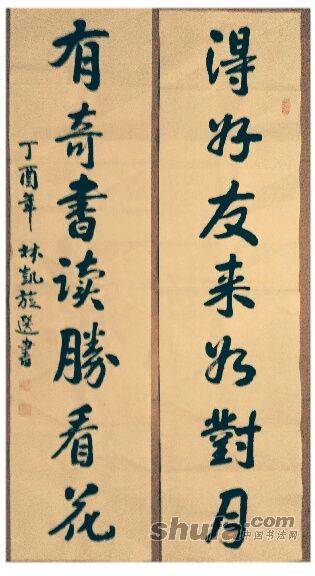 得好友来如對月
有奇書读勝看花
丁酉年 林凯旋選書
shufa.com
中国书法网